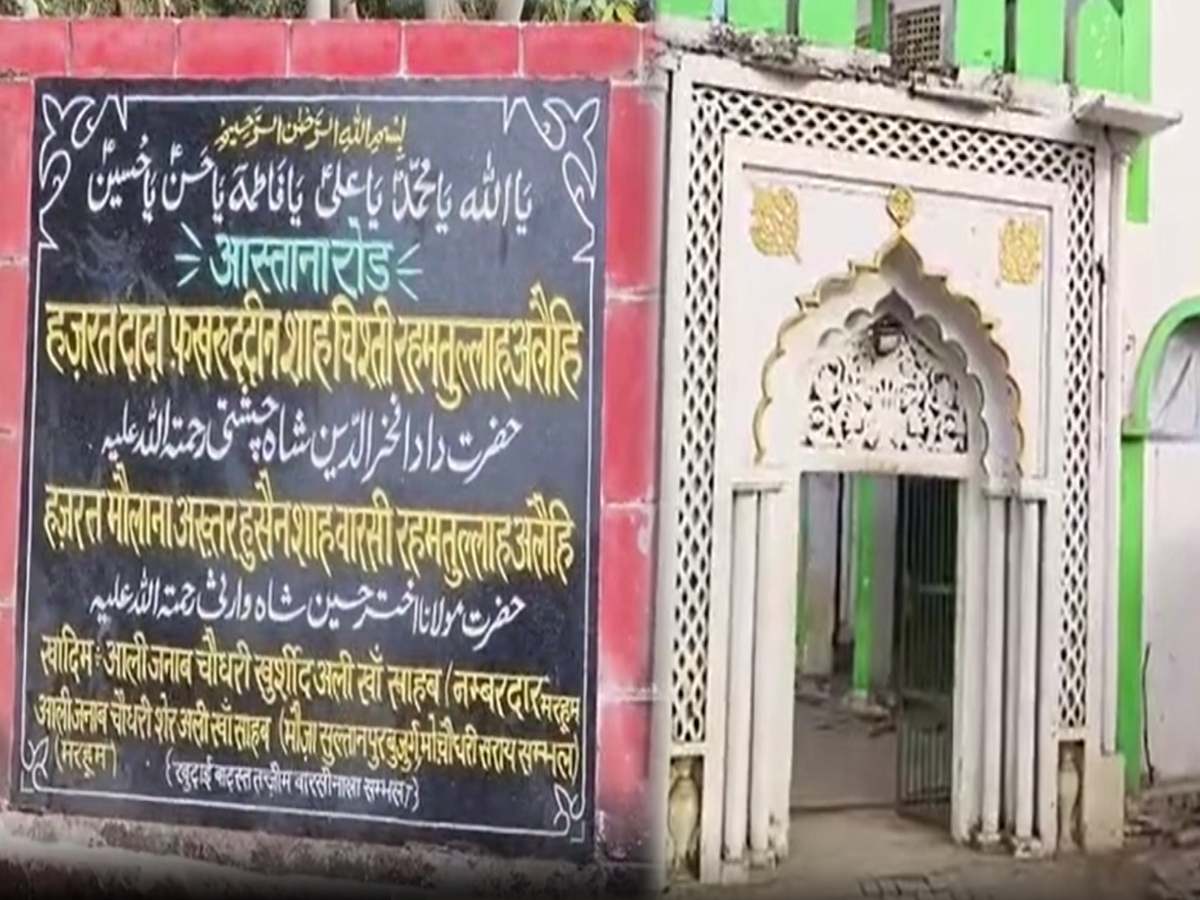 بسم اللہ الرحمن الرحیم
یا اللہ یا محمدؐ یا علیؑ یا فاطمہؑ یا حسنؑ یا حسینؑ
आस्ताना रोड
हज़रत दादा फ़खरुद्दीन शाह चिश्ती रहमतुल्लाह अलैहि
حضرت دادا فخر الدّین شاہ چشتی رحمتہ اللہ علیہ
हज़रत मौलाना अख़्तर हुसैन शाह वारसी रहमतुल्लाह अलैहि
حضرت مولانا اختر حسین شاہ وارثی رحمتہ اللہ علیہ
खादिम : आली जनाब चौधरी खुर्शीद अली खाँ साहब (नम्बरदार मरहूम
आली जनाब चौधरी शेर अली खाँ साहब (मौज़ा सुल्तानपुर बुजुर्ग, मो चौधरी सराय सम्भल)
(मरहूम)
{खुदाई बादस्त तज़ीम वारसी सम्भल}